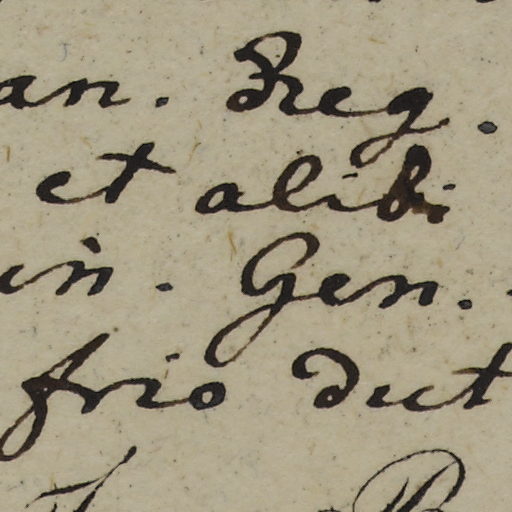 an. Preg.
et alibi
in. Gen.
frio dut